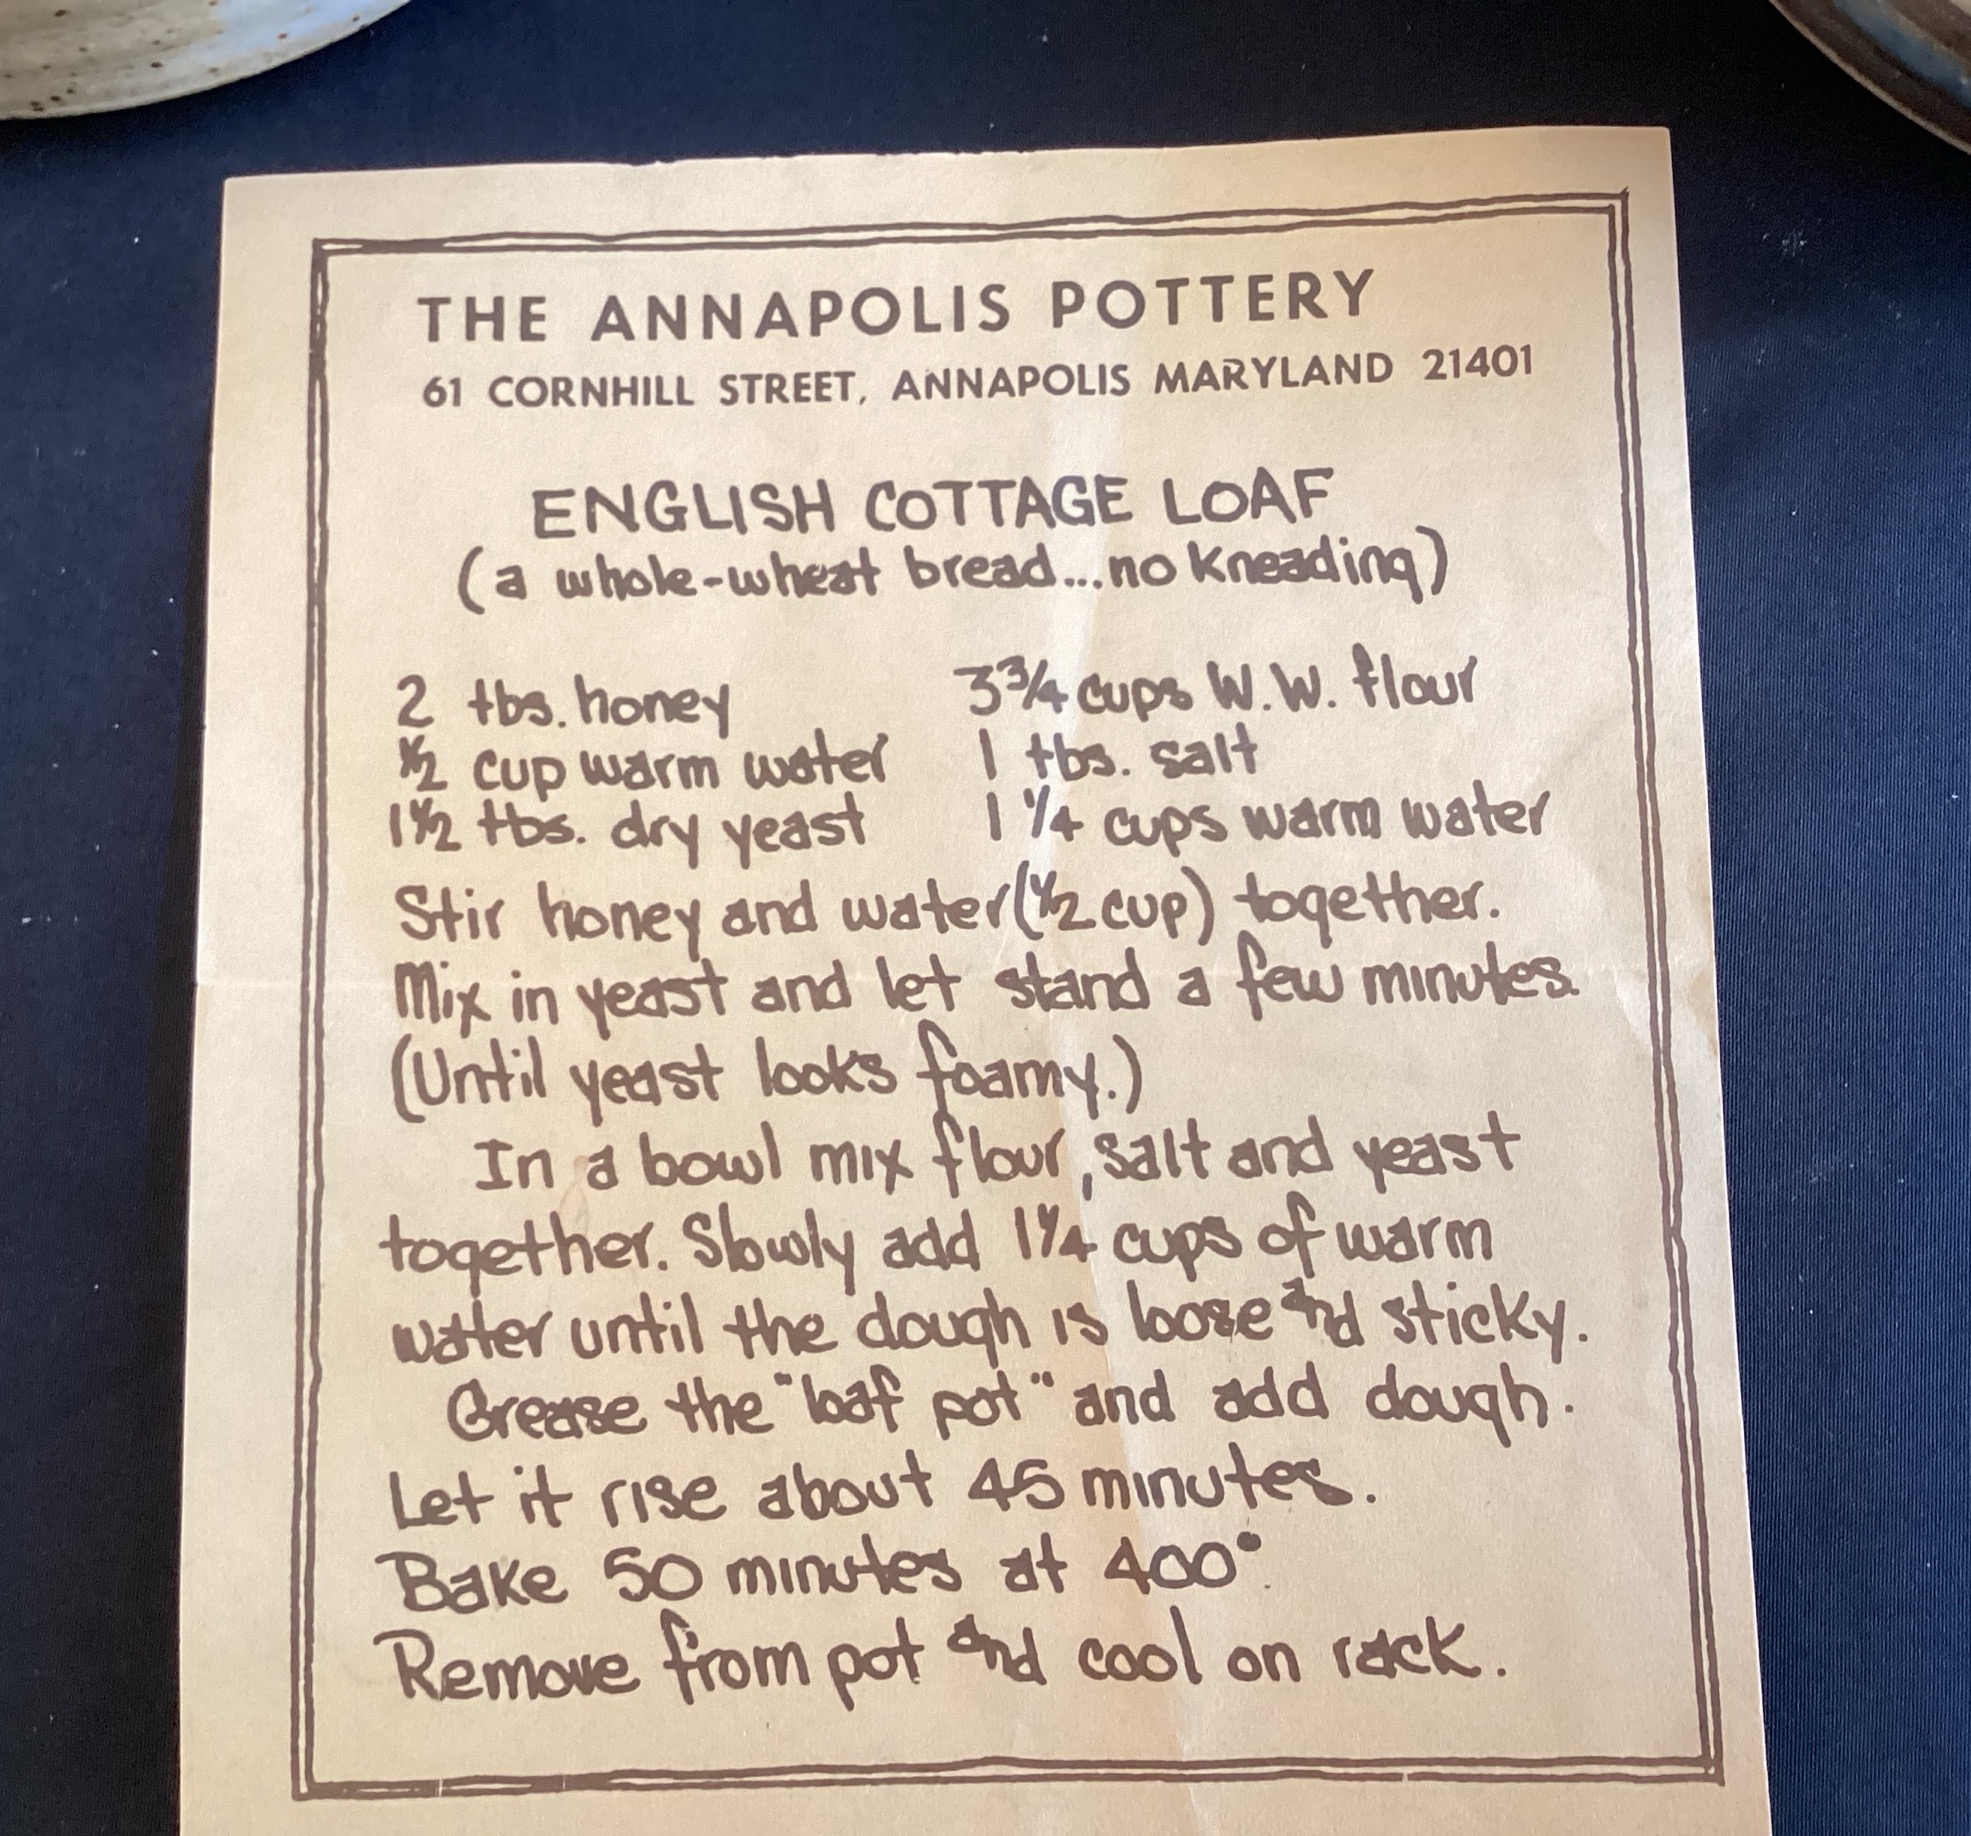 THE ANNAPOLIS POTTERY
61 CORNHILL STREET, ANNAPOLIS MARYLAND 21401
ENGLISH COTTAGE LOAF
(a whole-wheat bread...no kneading)
2 tbs. honey 3 3/4 cups W.W. flour
1/2 cup warm water 1 tbs. salt
1 1/2 tbs. dry yeast 1 1/4 cups warm water
Stir honey and water (1/2 cup) together.
Mix in yeast and let stand a few minutes.
(Until yeast looks foamy.)
In a bowl mix flour, salt and yeast
together. Slowly add 1 1/4 cups of warm
water until the dough is loose and sticky.
Grease the "loaf pot" and add dough.
Let it rise about 45 minutes.
Bake 50 minutes at 400°.
Remove from pot and cool on rack.